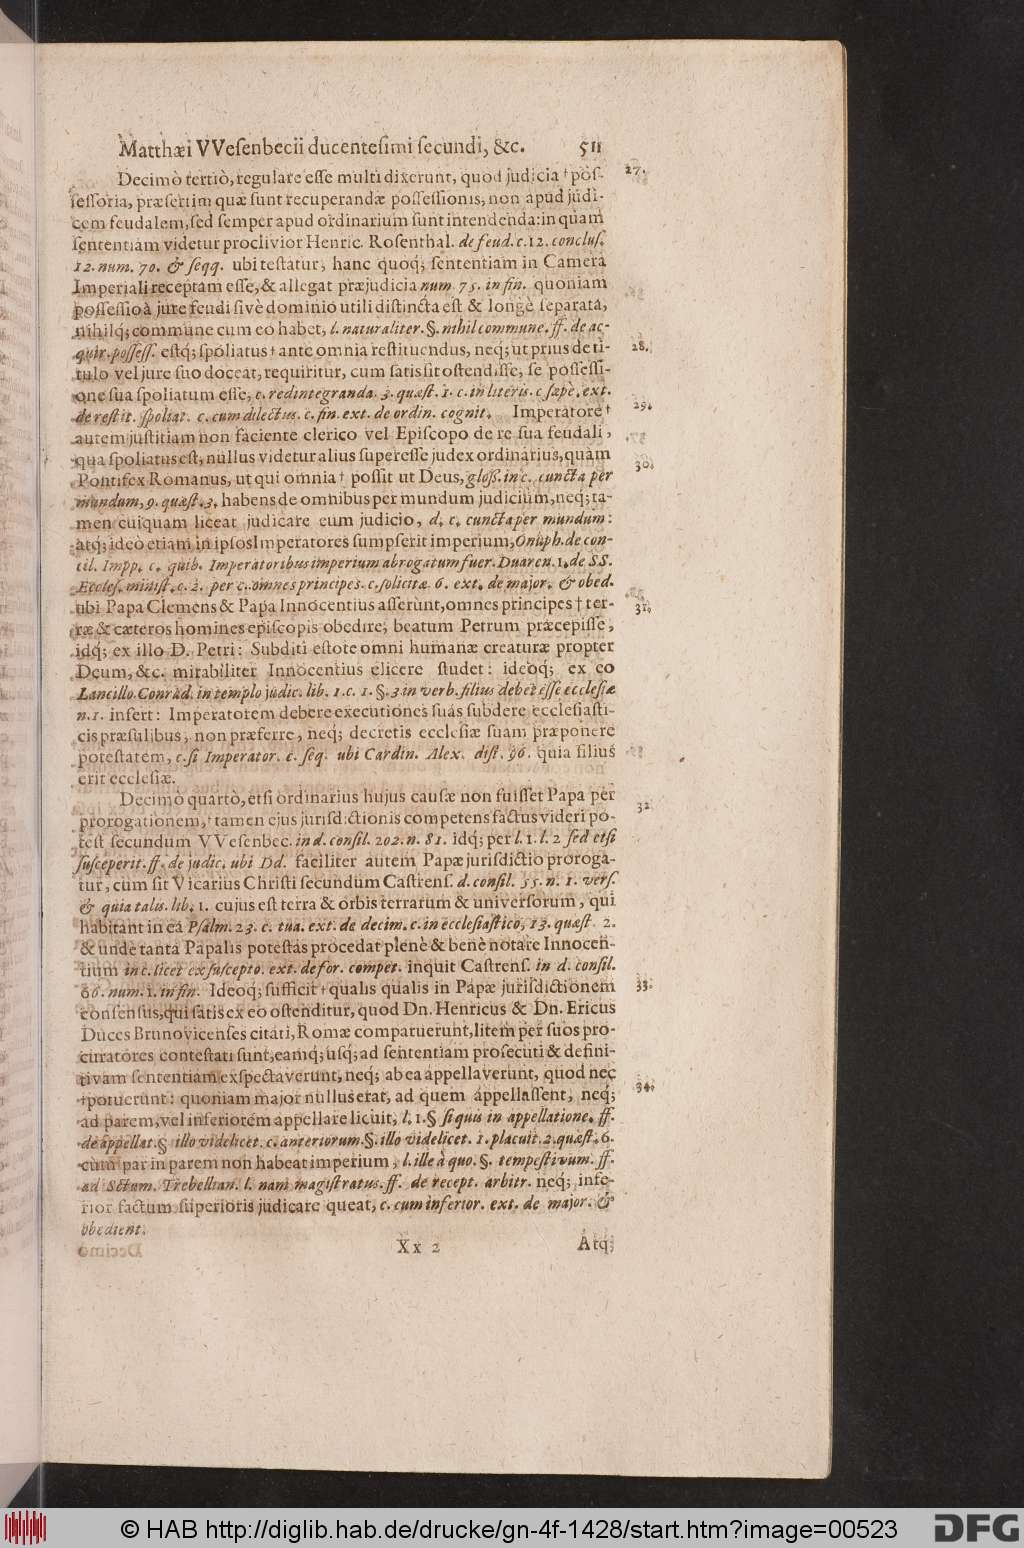 Matthæi VVesenbecii ducentesimi secundi, &c. 511
Decimò tertiò, regulare esse multi dixerunt, quod judicia † pos- 27.
sessoria, præsertim quæ sunt recuperandæ possessionis, non apud judi-
cem feudalem, sed semper apud ordinarium sunt intendenda: in quam
sententiam videtur proclivior Henric. Rosenthal. de feud. c. 12. conclus.
12. num. 70. & seqq. ubi testatur, hanc quoq; sententiam in Camera
Imperiali receptam esse, & allegat præjudicia num. 75. in fin. quoniam
possessio à jure feudi sivè dominio utili distincta est & longè separata,
nihilq; commune cum eo habet, l. naturaliter. §. nihil commune. ff. de ac-
quir. possess. estq; spoliatus † ante omnia restituendus, neq; ut prius de ti- 28.
tulo vel jure suo doceat, requiritur, cum satis sit ostendisse, se possessi-
one sua spoliatum esse, c. redintegranda. 3. quæst. 1. c. in literis. c sæpè. ext.
de restit. spoliat. c. cum dilectus. c. fin. ext. de ordin. cognit. Imperatore † 29.
autem justitiam non faciente clerico vel Episcopo de re sua feudali,
qua spoliatus est, nullus videtur alius superesse judex ordinarius, quàm
Pontifex Romanus, ut qui omnia † possit ut Deus, gloss. in c. cuncta per 30.
mundum, 9. quæst. 3. habens de omnibus per mundum judicium, neq; ta-
men cuiquam liceat judicare eum judicio, d. c. cuncta per mundum:
atq; ideò etiam in ipsos Imperatores sumpserit imperium, Onuph. de con-
cil. Impp. c. quib. Imperatoribus imperium abrogatum fuer. Duaren. 1. de SS.
Eccles. minist. c. 2. per c. omnes principes. c. solicitæ. 6. ext. de major. & obed.
ubi Papa Clemens & Papa Innocentius asserunt, omnes principes † ter- 31.
ræ & cæteros homines episcopis obedire, beatum Petrum præcepisse,
idq; ex illo D. Petri: Subditi estote omni humanæ creaturæ propter
Deum, &c. mirabiliter Innocentius elicere studet: ideoq; ex eo
Lancillo. Conrad. in templo judic. lib. 1. c. 1. §. 3 in verb. filius debet esse ecclesiæ
n. 1. infert: Imperatorem debere executiones suas subdere ecclesiasti-
cis præsulibus, non præferre, neq; decretis ecclesiæ suam præponere
potestatem, c. si Imperator. c. seq. ubi Cardin. Alex. dist. 96. quia filius
erit ecclesiæ.
Decimò quartò, etsi ordinarius hujus causæ non fuisset Papa per 32.
prorogationem, † tamen ejus jurisdictionis competens factus videri po-
test secundum VVesenbec. in d. consil. 202. n. 81. idq; per l. 1. l. 2 sed etsi
susceperit. ff. de judic. ubi Dd. faciliter autem Papæ jurisdictio proroga-
tur, cum sit Vicarius Christi secundum Castrens. d. consil. 55. n. 1. vers.
& quia talis. lib. 1. cujus est terra & orbis terrarum & universorum, qui
habitant in eâ Psalm. 23. c. tua. ext. de decim. c. in ecclesiastico, 13. quæst. 2.
& undè tanta Papalis potestas procedat plenè & benè notare Innocen-
tium in c. licet ex suscepto. ext. de for. compet. inquit Castrens. in d. consil.
66. num. 1. in fin. Ideoq; sufficit † qualis qualis in Papæ jurisdictionem 33.
consensus, qui satis ex eo ostenditur, quod Dn. Henricus & Dn. Ericus
Duces Brunovicenses citati, Romæ comparuerunt, litem per suos pro-
curatores contestati sunt, eamq; usq; ad sententiam prosecuti & defini-
tivam sententiam exspectaverunt, neq; ab ea appellaverunt, quod nec
† potuerunt: quoniam major nullus erat, ad quem appellassent, neq; 34.
ad parem, vel inferiorem appellare licuit, l. 1. § si quis in appellatione. ff.
de appellat. § illo videlicet. c. anteriorum. §. illo videlicet. 1. placuit. 2. quæst. 6.
cùm par in parem non habeat imperium, l. ille à quo. §. tempestivum. ff.
ad Sctum. Trebellian. l. nam magistratus. ff. de recept. arbitr. neq; infe-
rior factum superioris judicare queat, c. cum inferior. ext. de major. &
obedient.
Xx 2 Atq;
© HAB http://diglib.hab.de/drucke/gn-4f-1428/start.htm?image=00523 DFG